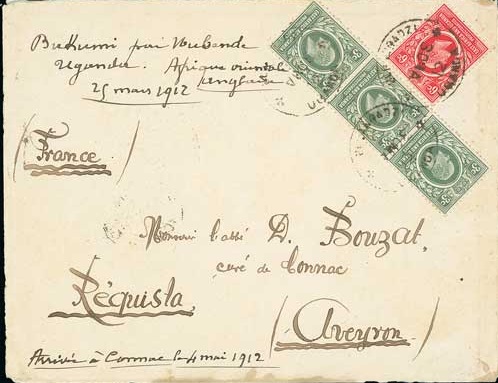 Bukumi par Mubende
Uganda. Afrique orientale
Anglaise
25 mars 1912
(France)
Monsieur l'abbé D. Bouzat,
curé de Connac
Réquista
(Aveyron)
Arrivée à Connac le 4 mai 1912